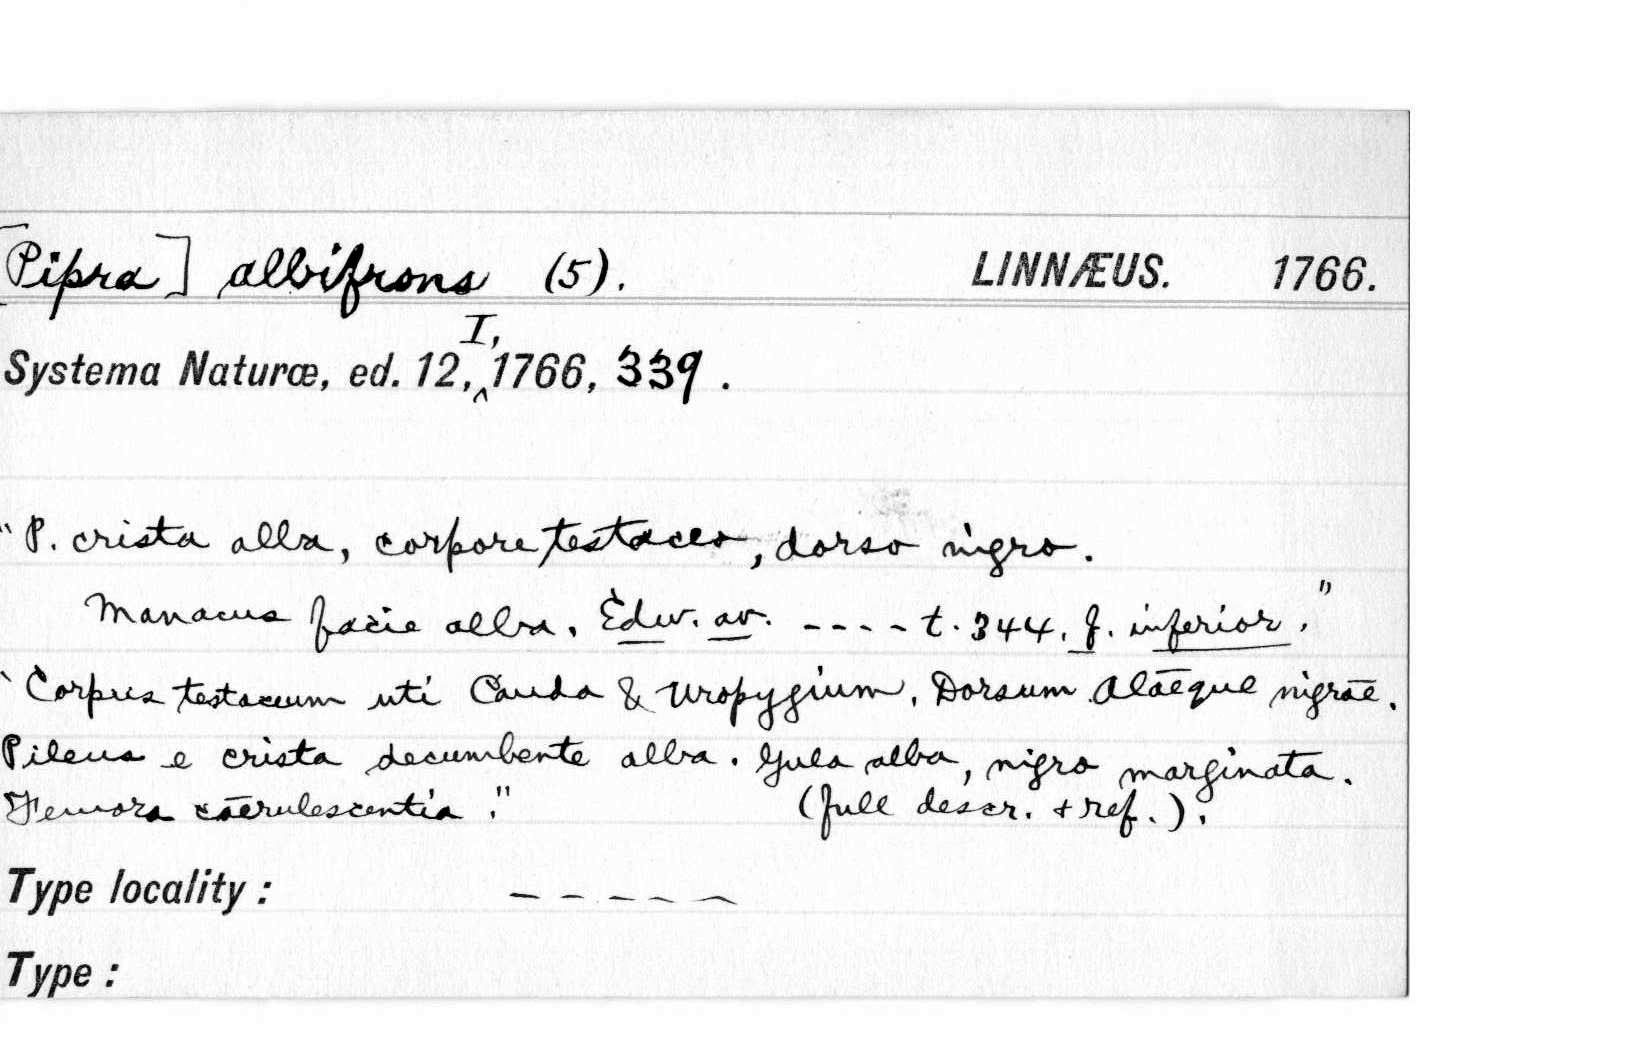 [Pipra] albifrons (5). LINNÆUS. 1766.
Systema Naturæ, ed. 12, I, 1766, 339.
"P. crista alba, corpore testaceo, dorso nigro.
Manacus facie alba. Edw. av. ---- t. 344. f. inferior."
"Corpus testaceum uti Cauda & Uropygium. Dorsum Alaeque nigrae.
Pileus e crista decumbente alba. Gula alba, nigro marginata.
Femora caerulescentia." (full descr. + ref.).
Type locality: -----
Type: